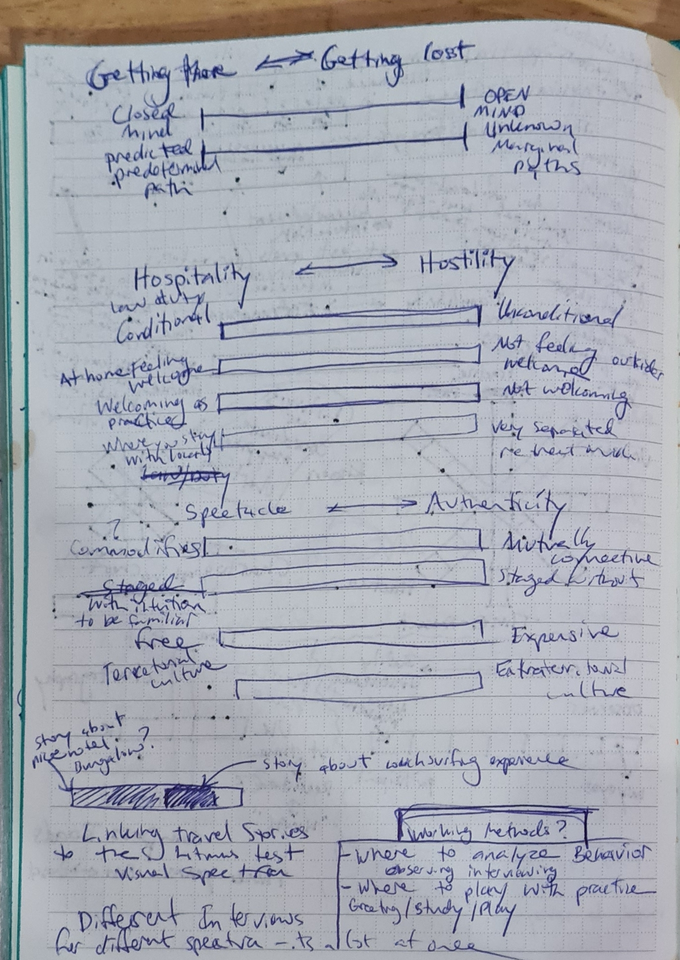 Getting there ↔ Getting lost
Closed mind OPEN MIND
predicted predetermined path Unknown Marginal paths
Hospitality ↔ Hostility
Law duty
Conditional Unconditional
At home feeling welcome Not feeling welcomed outsider
Welcoming as practice Not welcoming
Where you stay with locals very separated
Law/Duty
Spectacle ↔ Authenticity
?
Commodifies Mutually connective
Staged with intuition to be familiar Staged without
Free Expensive
Territorial culture Extraterritorial culture
Story about nice hotel Bungalow?
Story about couchsurfing experience
Linking travel Stories
to the litmus test
visual Spectrum
Different Interviews
for different spectra - its a lot at once
Working Methods?
- Where to analyze Behavior
observing interviewing
- Where to play with practice
Greeting / Study / Play